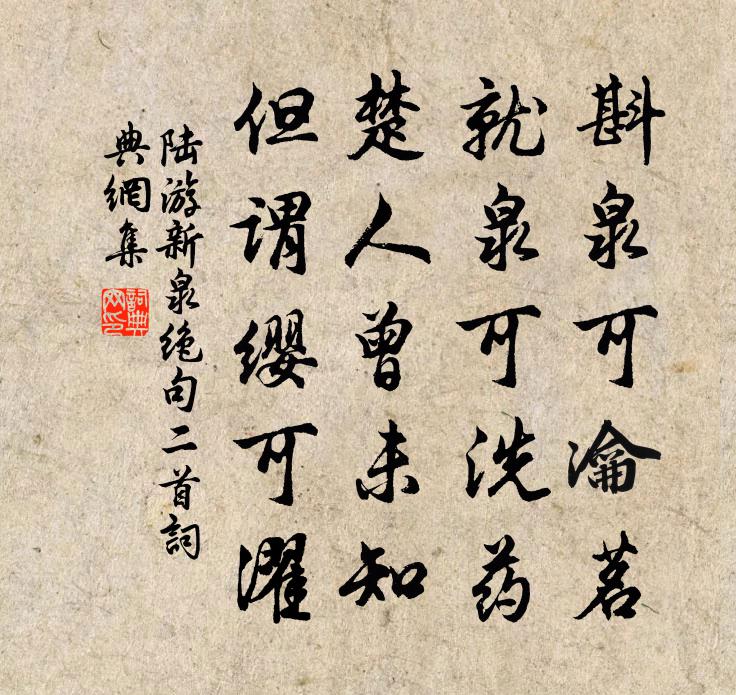 斟泉可瀹茗
就泉可洗药
楚人曾未知
但谓缨可濯
陆游新泉绝句二首詞
典網集
詞典網印